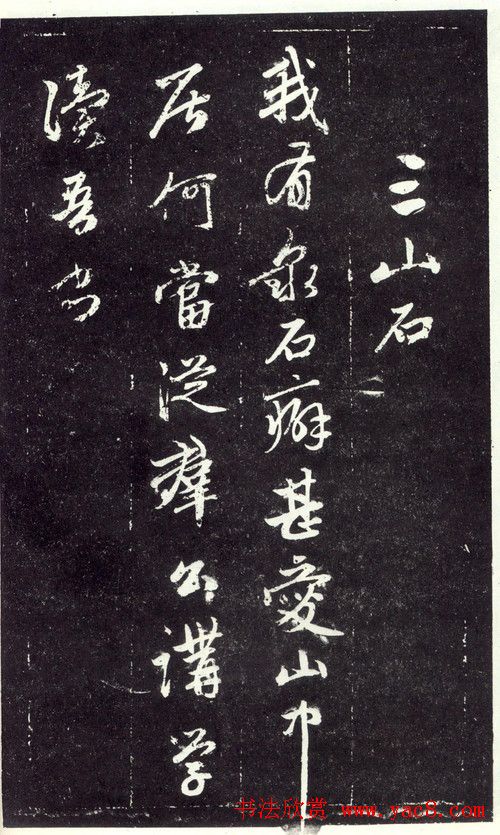 三山石
我有泉石癖甚愛山中
居何當從群公講學
讀吾書
书法欣赏 www.yac8.com